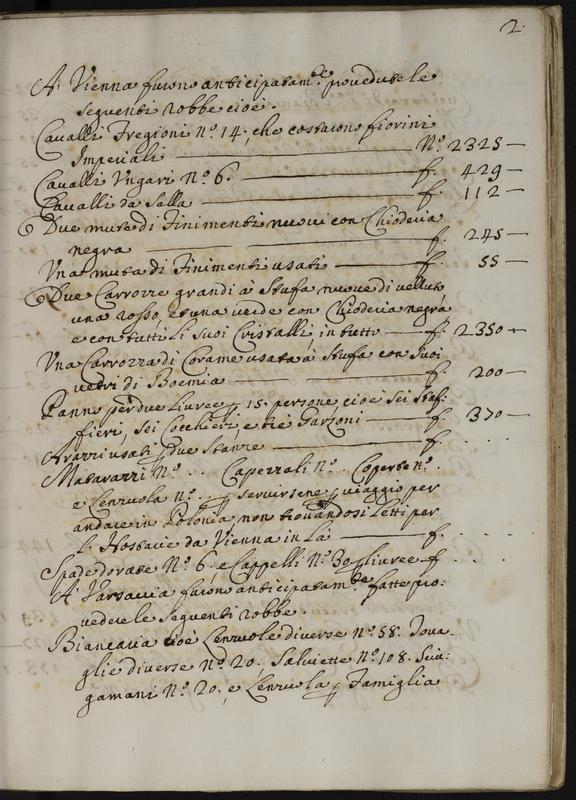 2.
A' Vienna furono anticipatam.te provedute le
seguenti robbe cioè.
Cavalli Fregioni N.o 14. che costarono fiorini
Imperiali — N.o 2325 —
Cavalli Ungari N.o 6. — f. 429 —
Cavalli da Sella — f. 112 —
Due mute di Finimenti nuovi con Chioderia
negra — f. 245 —
Una muta di Finimenti usati — f. 55 —
Due Carrozze grandi à Stufa nuove di velluto
una rosso, et una verde con Chioderia negra
e con tutti li suoi Cristalli, in tutto — f. 2350 —
Una Carrozza di Corame usata à Stufa con suoi
vetri di Boemia — f. 200 —
Panno per due Livree p 15. persone cioè Sei Staf:
fieri, Sei Cocchieri, e trè Garzoni — f. 370 —
Arazzi usati p Due Stanze — f. . . .
Matarazzi N.o . . Capezzali N.o . Coperte n.o
e Lenzuola N.o . . p servirsene p viaggio per
andare in Polonia non trovandosi Letti per
l'Hostarie da Vienna in là — f. . . .
Spade dorate N.o 6, e Cappelli N.o 30 p livree f . . .
A' Varsavia furono anticipatam.te fatte pro:
vedere le seguenti robbe.
Biancaria cioè Lenzuole diverse N.o 58. Tova:
glie diverse N.o 20., Salviette N.o 108. Sciu:
gamani N.o 20. e Lenzuola p Famiglia